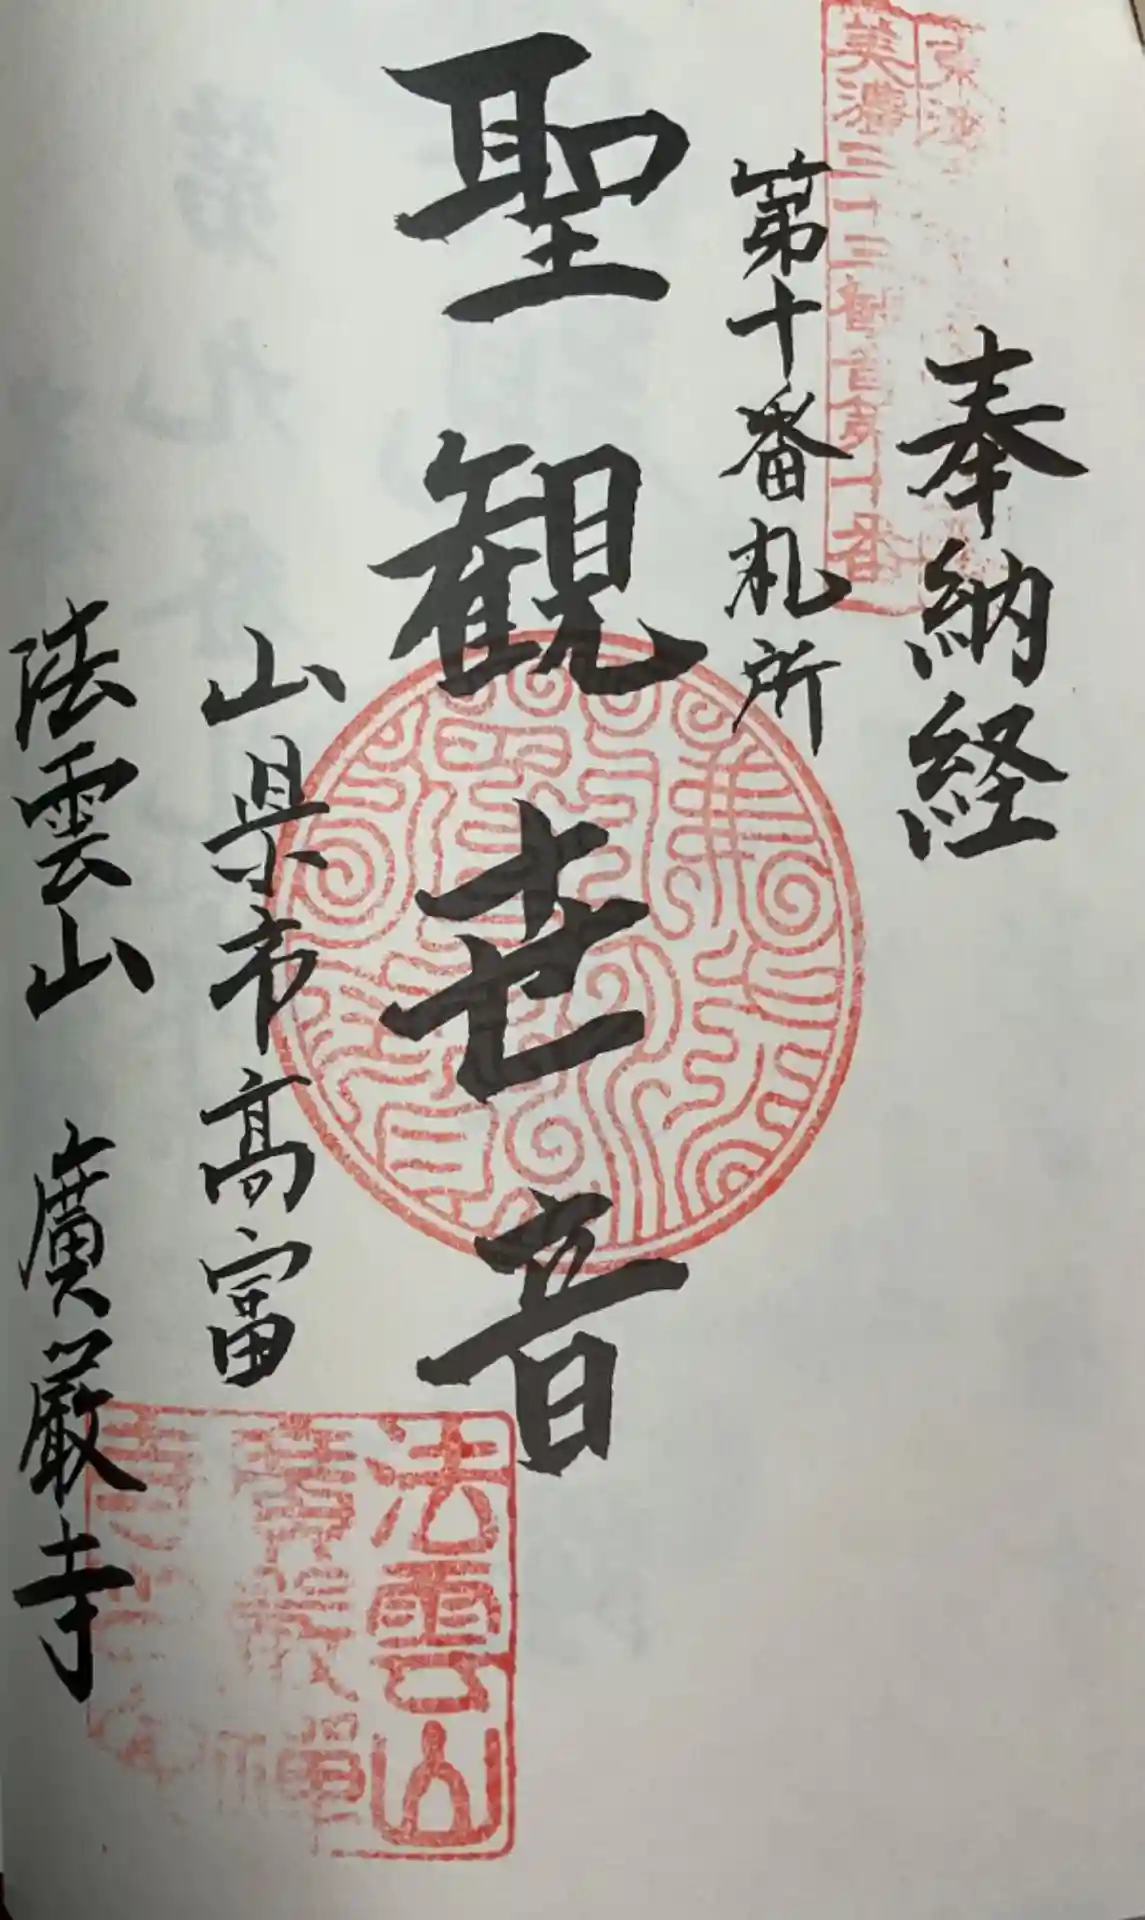 美濃三十三観音第十番
奉納経
第十番札所
聖観世音
山県市高富
法雲山 廣厳寺
法雲山